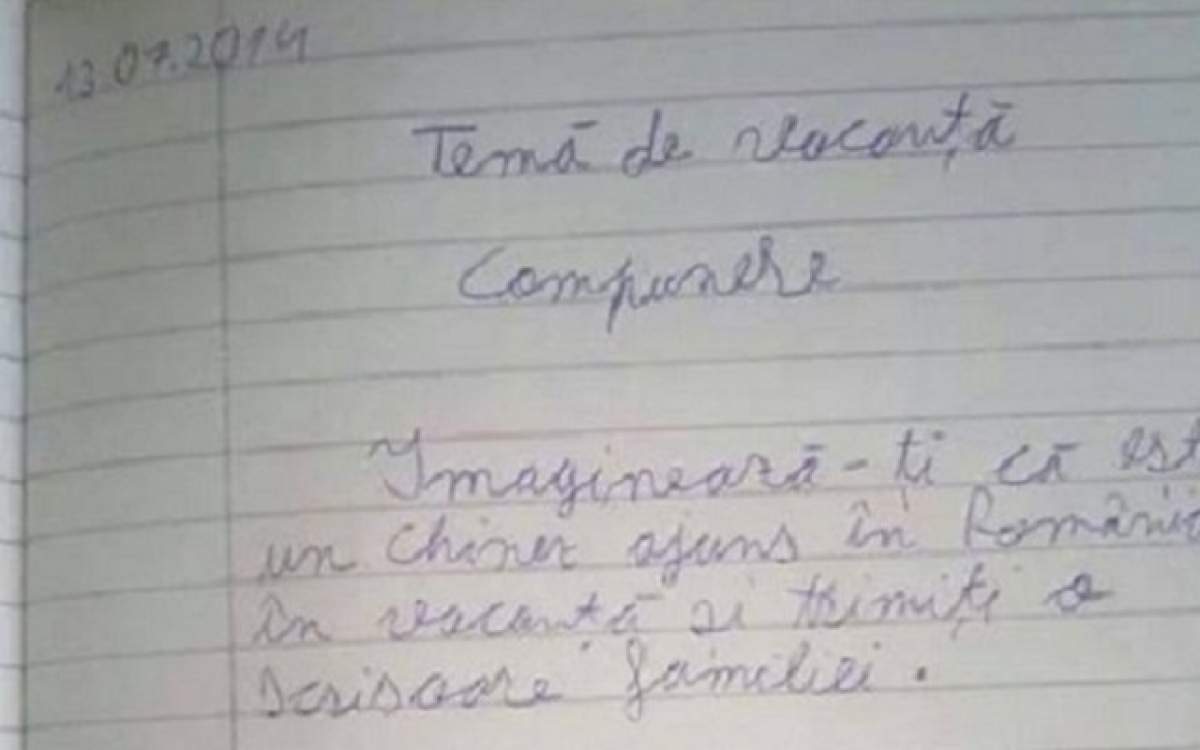 13.07.2014
Temă de vacanță
Compunere
Imaginează-ți că est
un chinez ajuns în România
în vacanță si trimiți o
scrisoare familiei.